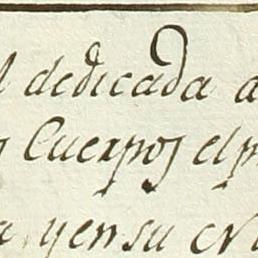 dedicada a
Cuerpos el
y en su